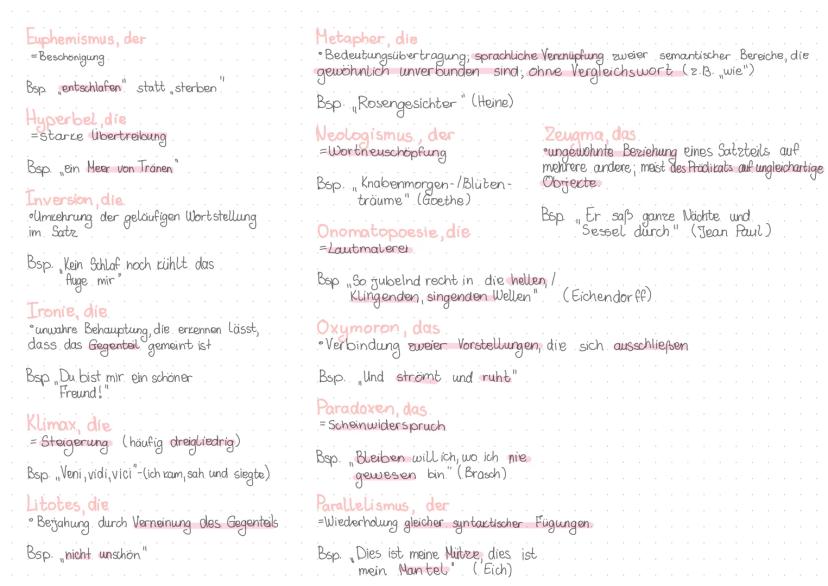 Euphemismus, der
= Beschönigung
Bsp. „entschlafen" statt „sterben"
Hyperbel, die
= starke Übertreibung
Bsp. „ein Meer von Tränen"
Inversion, die
°Umkehrung der geläufigen Wortstellung
im Satz
Bsp. „Kein Schlaf noch kühlt das
Auge mir"
Ironie, die
°unwahre Behauptung, die erkennen lässt,
dass das Gegenteil gemeint ist
Bsp „Du bist mir ein schöner
Freund!"
Klimax, die
= Steigerung (häufig dreigliedrig)
Bsp. „Veni, vidi, vici"-(ich kam, sah und siegte)
Litotes, die
° Bejahung durch Verneinung des Gegenteils
Bsp. „nicht unschön"
Metapher, die
°Bedeutungsübertragung; sprachliche Verknüpfung zweier semantischer Bereiche, die
gewöhnlich unverbunden sind; ohne Vergleichswort (z.B. „wie")
Bsp. „Rosengesichter" (Heine)
Neologismus, der
= Wortneuschöpfung
Bsp. „Knabenmorgen-/Blüten-
träume" (Goethe)
Onomatopoesie, die
= Lautmalerei
Bsp „So jubelnd recht in die hellen, /
Klingenden, singenden Wellen" (Eichendorff)
Oxymoron, das
°Verbindung zweier Vorstellungen, die sich ausschließen
Bsp. „Und strömt und ruht"
Paradoxen, das
= Scheinwiderspruch
Bsp. „Bleiben will ich, wo ich nie
gewesen bin." (Brasch)
Parallelismus, der
=Wiederholung gleicher syntaktischer Fügungen
Bsp. „Dies ist meine Mütze, dies ist
mein Mantel" (Eich)
Zeugma, das
°ungewohnte Beziehung eines Satzteils auf
mehrere andere; meist des Prädikats auf ungleichartige
Objekte
Bsp „Er saß ganze Nächte und
Sessel durch" (Jean Paul)